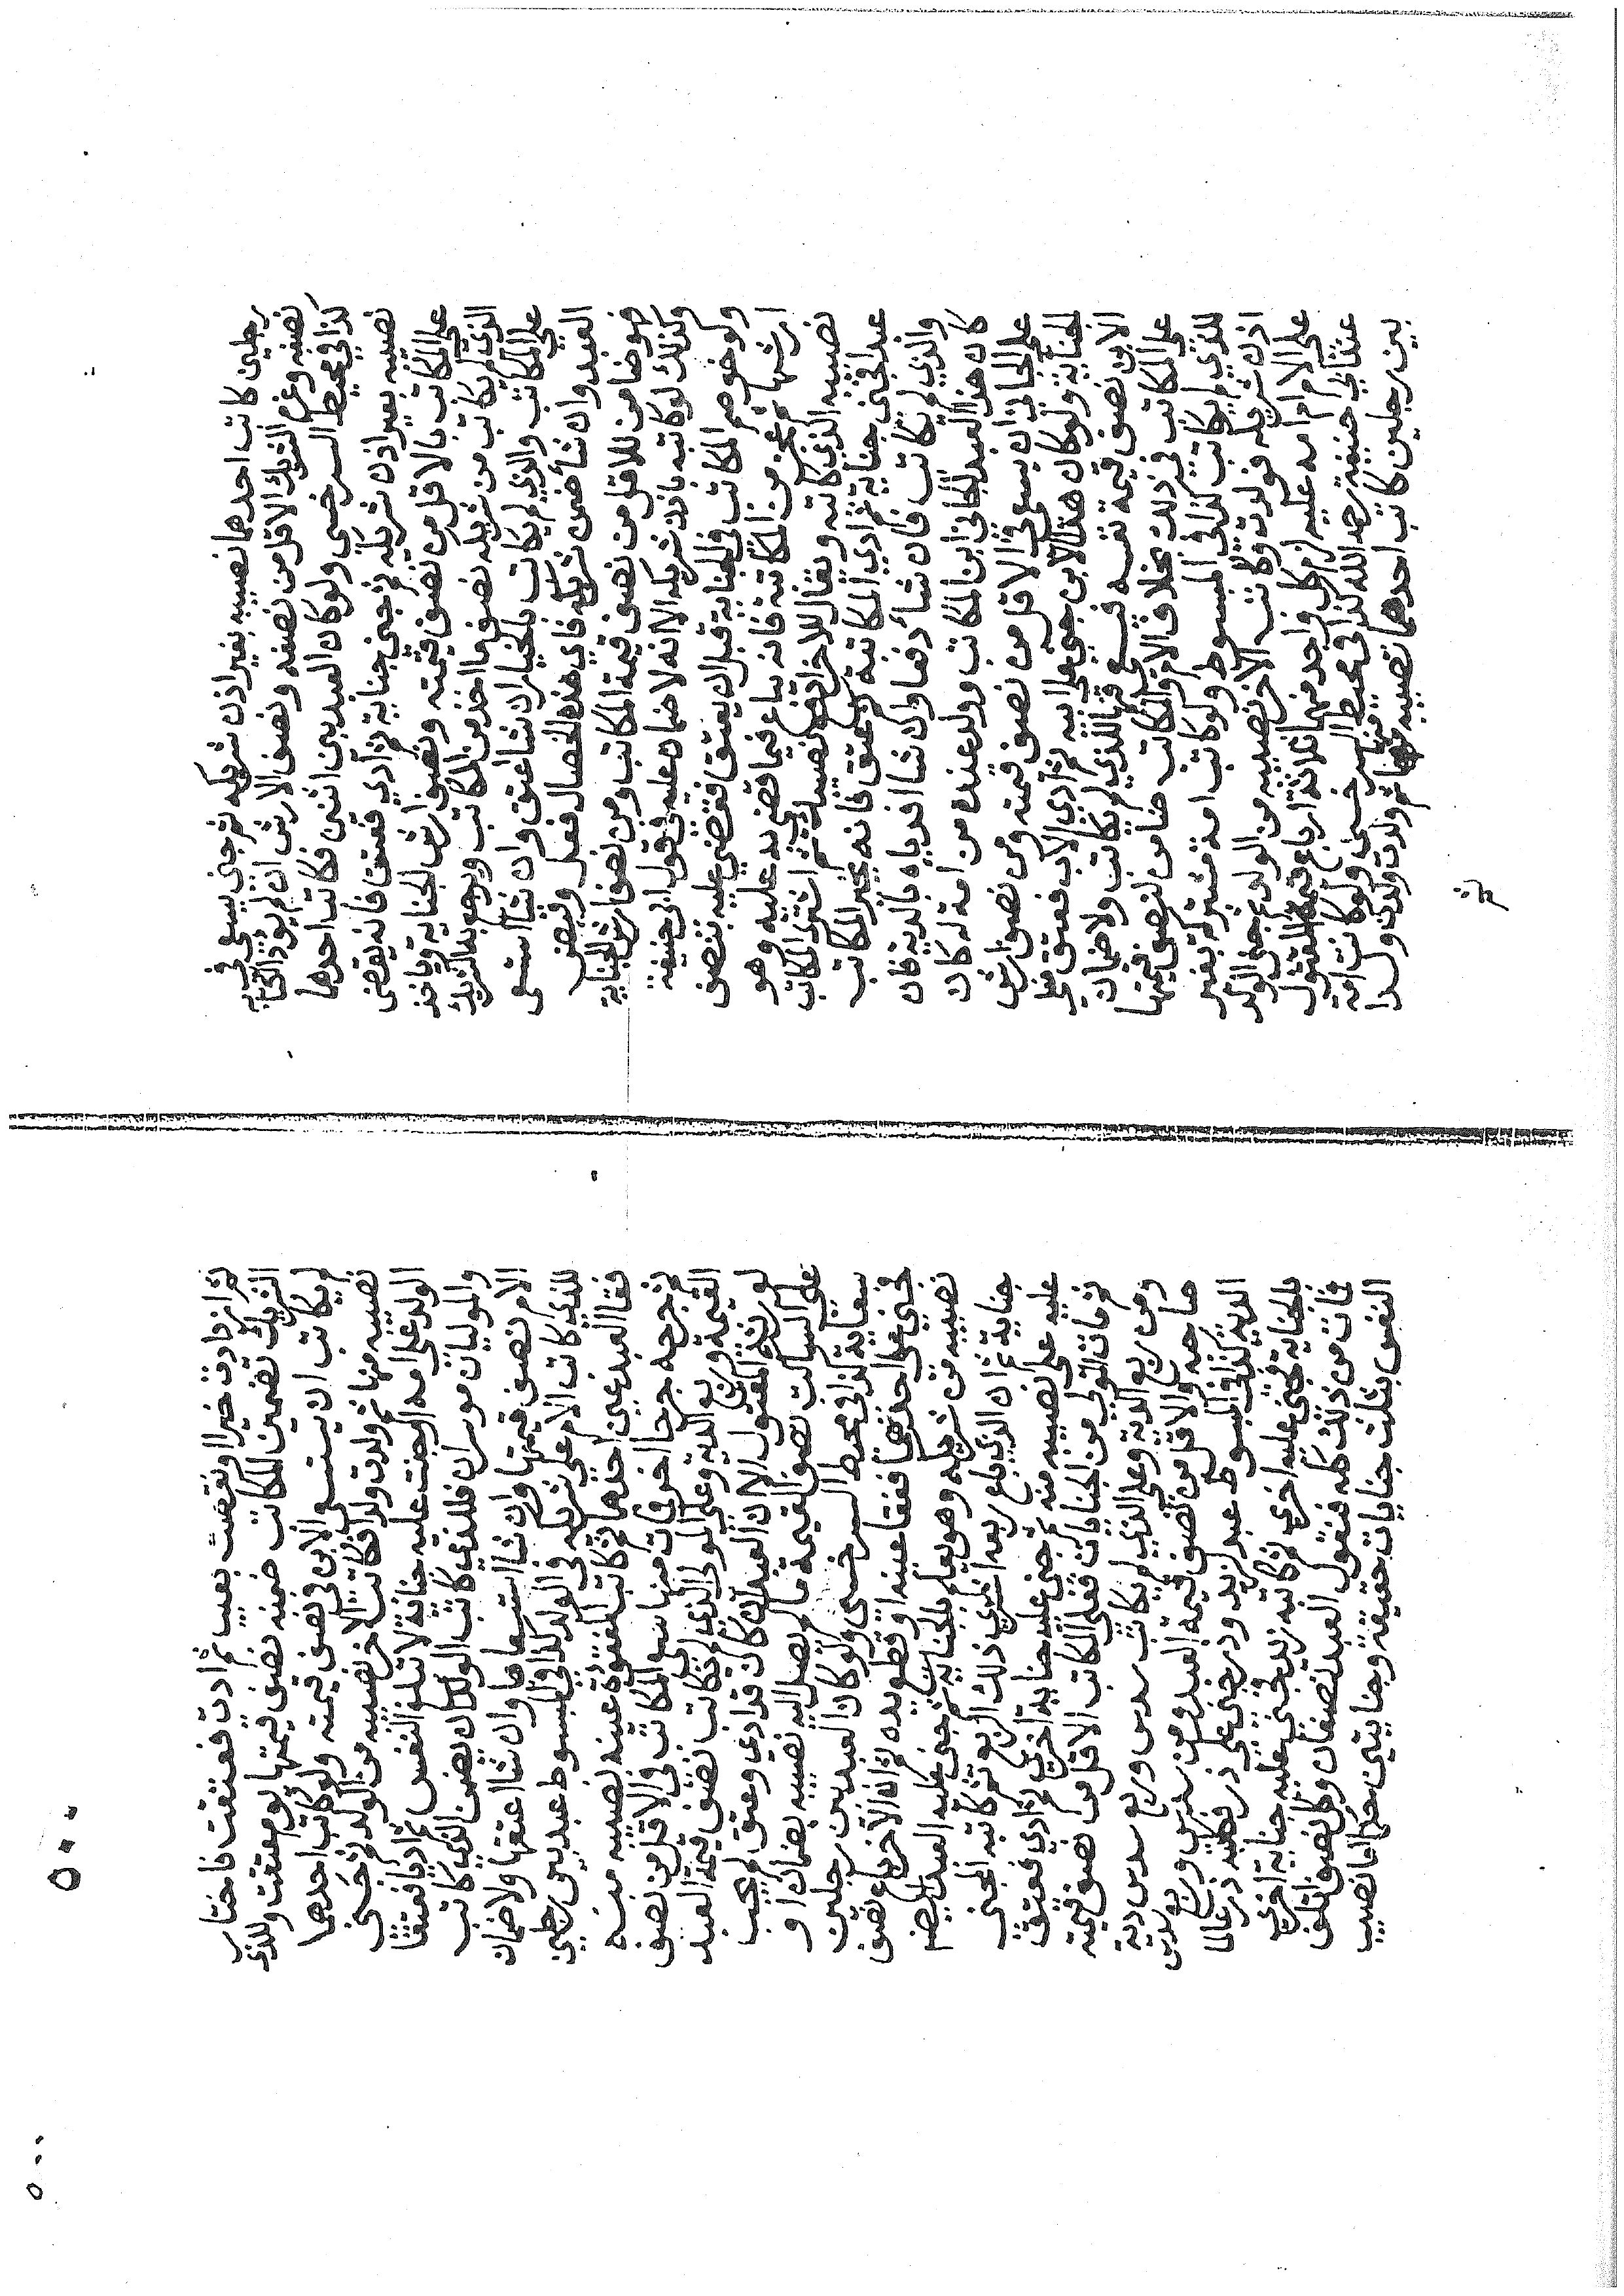 رجلين كاتب احدهما نصيبه بغير اذن شريكه ثم جنى يسعى في
نصفه وغرم الشريك الاقل من نصفه ونصف الارش ان لم يؤد الكتابة
كذا في محيط السرخسي ولو كان العبد بين اثنين فكاتب احدهما
نصيبه بغير اذن شريكه ثم جنى جناية ثم ادي فعتق فانه يقضى
على المكاتب بالاقل من نصف قيمته ونصف ارش الجناية وياخذ
الذي لم يكاتب من شريكه نصف ما اخذ من المكاتب ويرجع به الشريك
على المكاتب والذي لم يكاتب بالخيار ان شا اعتق وان شا استسعى
العبد وان شا ضمن شريكه فاي هذه الخصال فعل وقبض
فهو ضامن للاقل من نصف قيمة المكاتب ومن نصف ارش الجناية
وكذلك لو كاتبه باذن شريكه الا انه لا ضمان عليه في قول ابي حنيفة
ولو خوصم المكاتب في الجناية قبل ان يعتق فقضي عليه بنصف
ارشها ثم عجز من المكاتبة فانه يباع فيما قضي به عليه وهو
نصيبه الذي كاتبه ويقال للاخر ادفع نصيبك ثم اشترى المكاتب
عبدا فجنى جناية ثم ادي المكاتبة فعتق فانه يخير المكاتب
والذي لم يكاتب فان شا دفعا وان شا افدياه بالدية فان
كان هذا العبد الجاني ابن المكاتب وولد عنده من امة له كان
على الجاني ان يسعى في الاقل من نصف قيمته ومن نصف ارش
الجناية ولو كان هذا الابن جنى على ابيه ثم ادي الاب فعتق فعلى
الابن نصف قيمة نفسه فيسعى فيها للذي لم يكاتب ولا ضمان
على المكاتب في ذلك بخلاف الام والمكاتب ضامن لنصف قيمتها
للذي لم يكاتب كذا في المبسوط ولو كاتب امة مشتركة بغير
اذن شريكه فولدت وكاتب الاخر نصيبه من الولد ثم جنى الولد
على الام او امه عليه لزم كل واحد منهما ثلاثة ارباع قيمة المقتول
عند ابي حنيفة رحمه الله كذا في محيط السرخسي ولو كانت امة
بين رجلين كاتب احدهما نصيبه منها ثم ولدت ولدا
ثم
ثم ازدادت خيرا او نقصت بعيب ثم ادت فعتقت فاختار
الشريك تضمين المكاتب ضمنه نصف قيمتها يوم عتقت وللذي
لم يكاتب ان يستسعى الابن في نصف قيمته ولو كاتب احدهما
نصيبه منها ثم ولدت ولدا فكاتب الاخر نصيبه من الولد ثم جنى
الولد على امه او جنت عليه جناية لا تبلغ النفس ثم اديا فعتقا
والموليان موسران فللذي كاتب الولد ان يضمن الذي كاتب
الام نصف قيمتها وان شا استسعاها وان شا اعتقها ولا ضمان
للذي كاتب الام على شريكه في الولد كذا في المبسوط عبد بين رجلين
فقا العبد عين احدهما ثم كاتب المفقوة عينه نصيبه منه
ثم جرحه جرحا اخر فمات منها سعى المكاتب في الاقل من نصف
القيمة وربع الدية وعلى المولى الذي لم يكاتب نصف قيمة العبد
لورثة المقتول الا ان العبد ان كان قد ادي وعتق لم يجب
على الساكت نصف القيمة ما لم يصل اليه نصيبه بضمان او
سعاية كذا في محيط السرخسي ولو كان العبد بين رجلين
فجنى على احدهما ففقا عينه او قطع يده ثم انه الاخر باع نصف
نصيبه من شريكه وهو يعلم بالجناية ثم جنى عليه العبد ايضا
جناية ثم ان الذي باع ربعه اشترى ذلك الربع ثم كاتبه المجنى
عليه على نصيبه منه ثم جنى عليه جناية اخرى ثم ادي فعتق
ثم مات المولى من الجنايات فعلى المكاتب الاقل من نصف قيمته
ومن ربع الدية وعلى الذي لم يكاتب سدس وربع سدس دية
صاحبه والاقل من نصف قيمة العبد ومن سدس وربع سدس
الدية كذا في المبسوط عبد لزيد ودرجنى على زر فكلبد در عالما
بالجناية فجنى عليه اخرى ثم كاتبه زيد فجنى عليه جناية اخرى
فمات من ذلك كله فنقول العبد نصفان وكل نصف اتلف
النفس بثلث جنايات حقيقة وجنايتين حكما اما نصيب